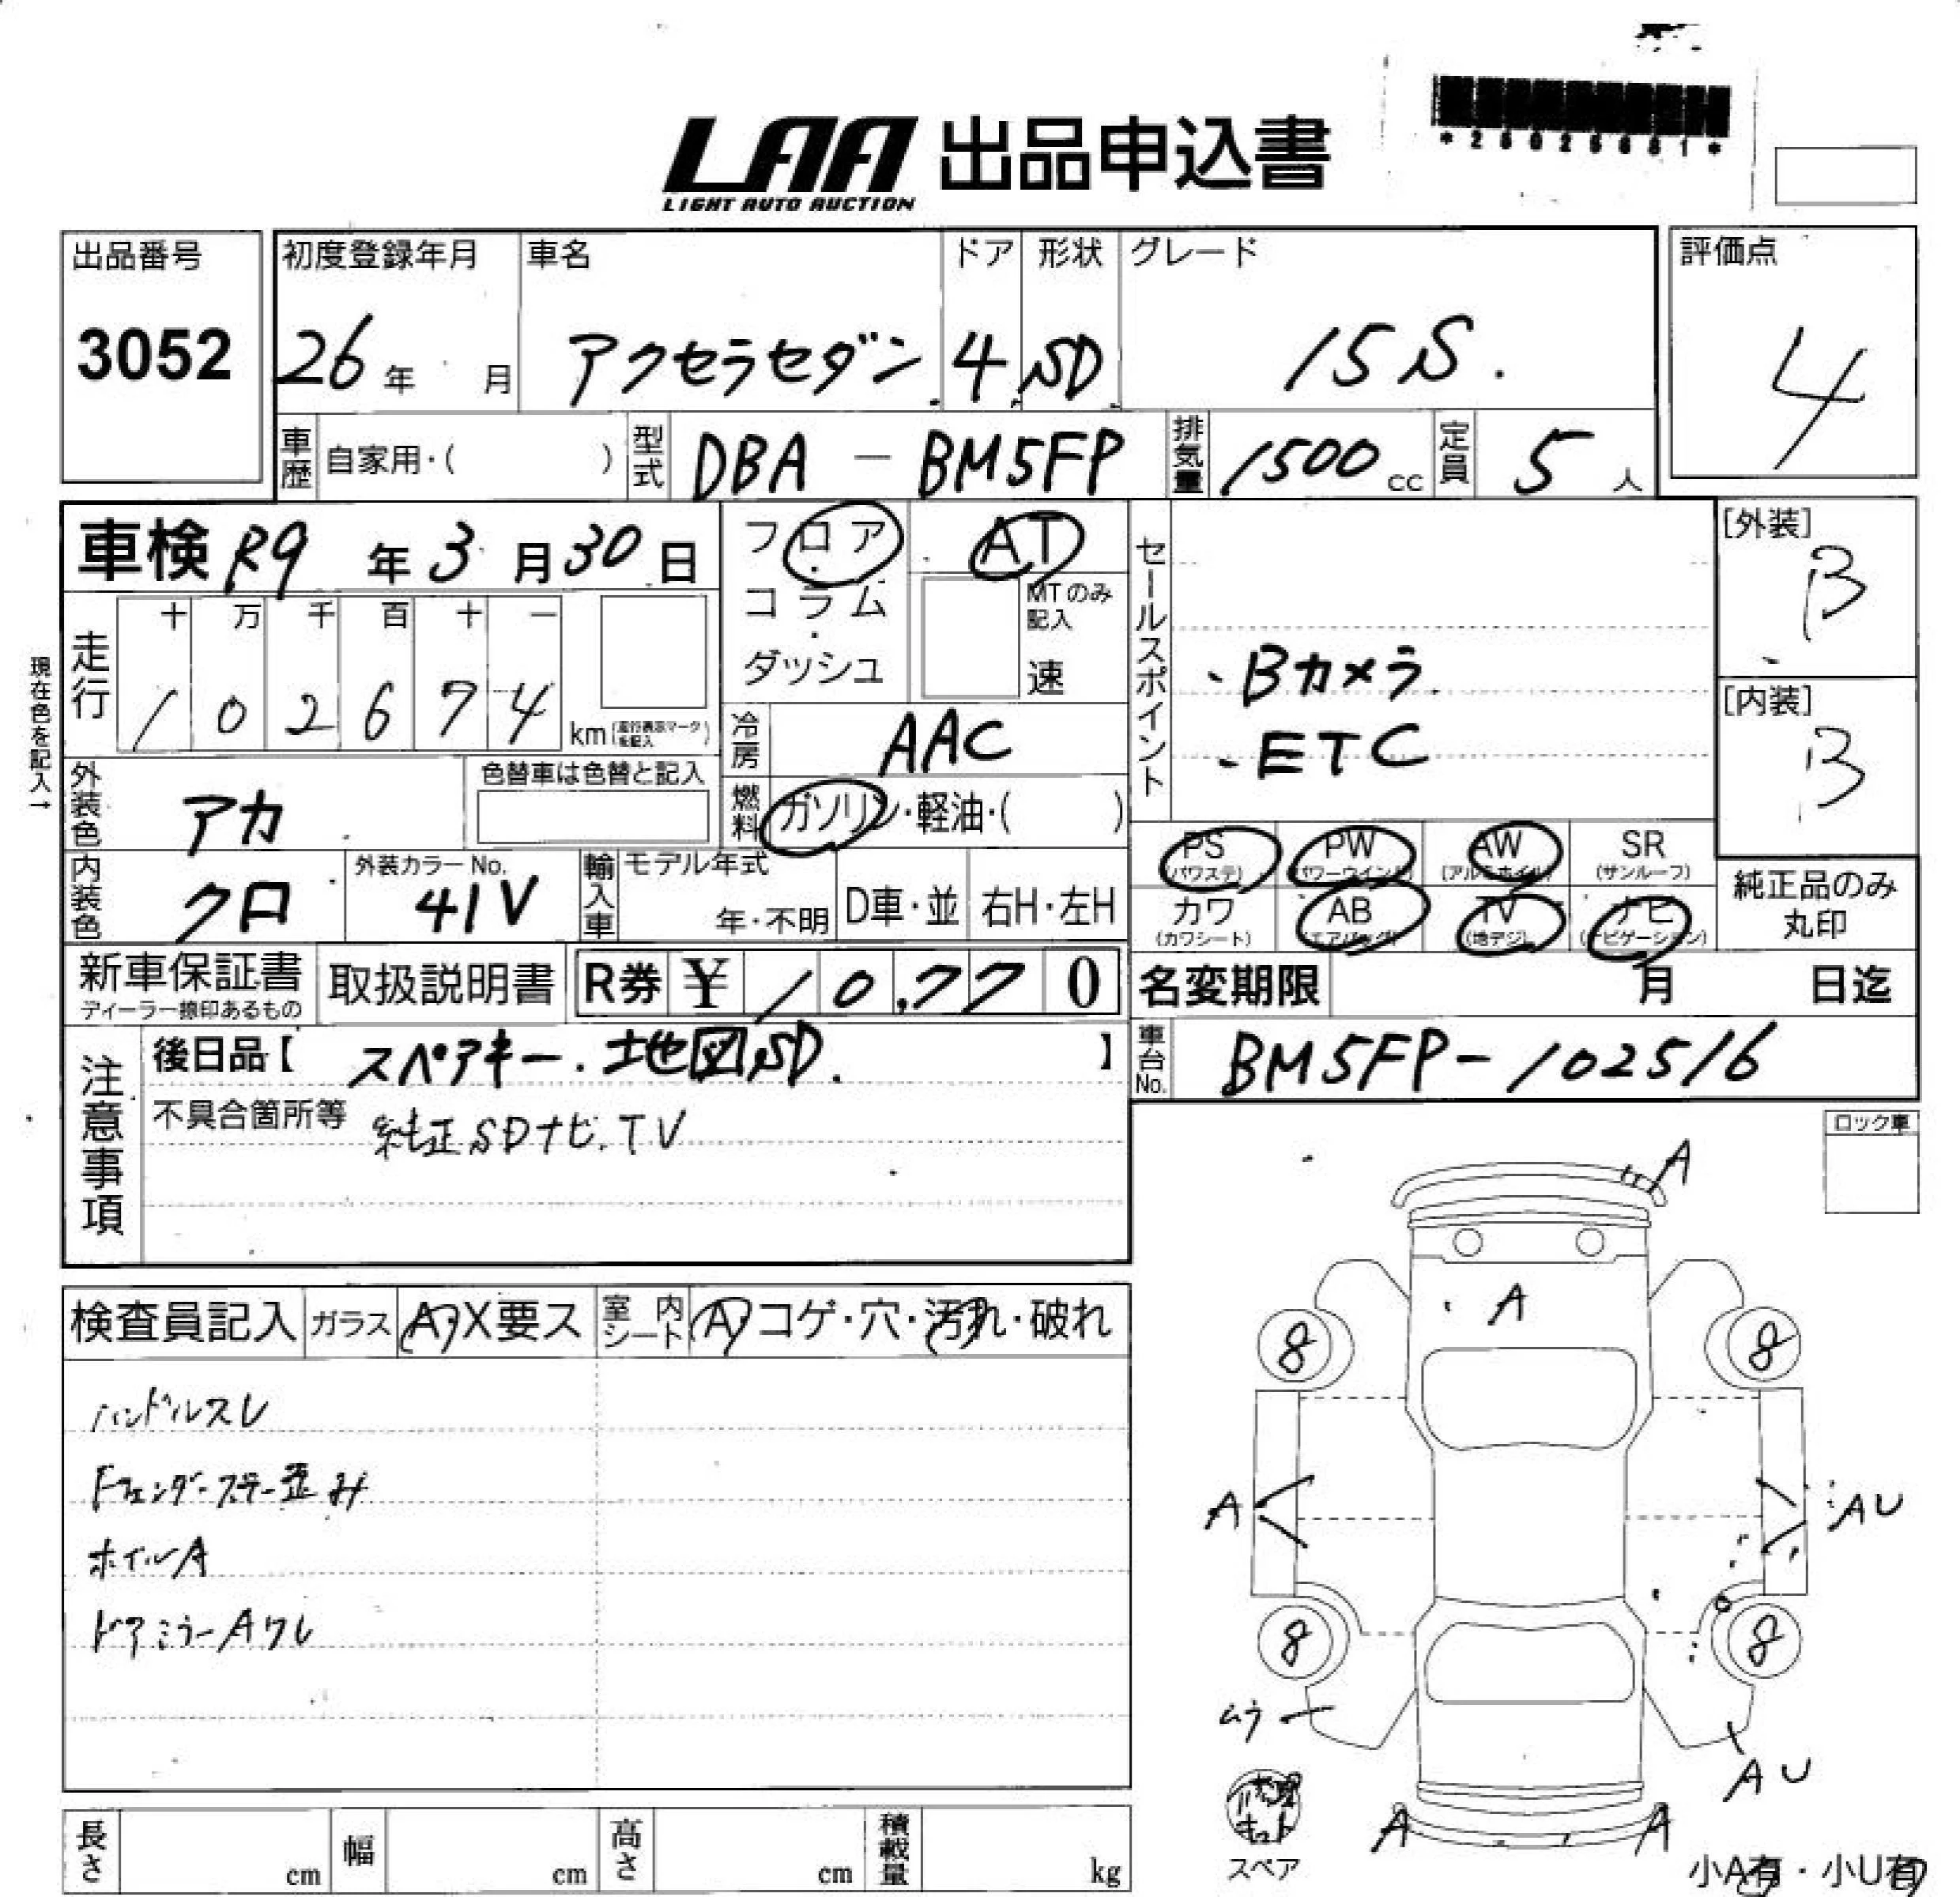 LAA 出品申込書
LIGHT AUTO AUCTION
出品番号
3052
初度登録年月
26年 月
車名
アクセラセダン
ドア
4
形状
SD
グレード
15S.
評価点
4
車歴 自家用・( )
型式 DBA-BM5FP
排気量 1500cc
定員 5人
車検 R9年3月30日
フロア・コラム・ダッシュ
AT
MTのみ記入
速
セールスポイント
・Bカメラ
・ETC
[外装]
B
[内装]
B
現在色を記入→
走行
十 万 千 百 十 一
1 0 2 6 7 4 km(走行表示マークを記入)
冷房 AAC
外装色 アカ
色替車は色替と記入
燃料 ガソリン・軽油・( )
内装色 クロ
外装カラーNo.
41V
輸入車 モデル年式
年・不明 D車・並 右H・左H
PS (パワステ)
PW (パワーウインド)
AW (アルミホイル)
SR (サンルーフ)
カワ (カワシート)
AB (エアバッグ)
TV (地デジ)
ナビ (ナビゲーション)
純正品のみ丸印
新車保証書
ディーラー捺印あるもの
取扱説明書
R券 ¥10,770
名変期限 月 日迄
注意事項
後日品【スペアキー.地図SD.】
車台No. BM5FP-102516
不具合箇所等 純正SDナビ.TV
ロック車
検査員記入 ガラス A・X要ス 室内シート A・コゲ・穴・汚れ・破れ
ハンドルスレ
Fフェンダーステー歪み
ホイルA
ドアミラーAワレ
A
A
8
8
A
AU
8
8
ムラ
AU
修理キット
スペア
A
A
小A有・小U有
長さ cm 幅 cm 高さ cm 積載量 kg